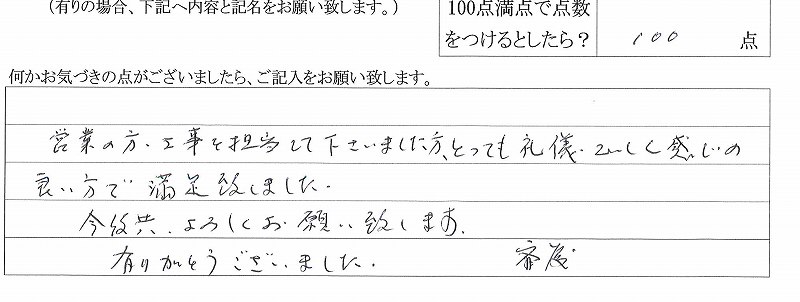 (有りの場合、下記へ内容と記名をお願い致します。)
100点満点で点数
をつけるとしたら？ 100 点
何かお気づきの点がございましたら、ご記入をお願い致します。
営業の方、工事を担当して下さいました方、とっても礼儀正しく感じの
良い方で満足致しました。
今後共、よろしくお願い致します。
有りがとうございました。